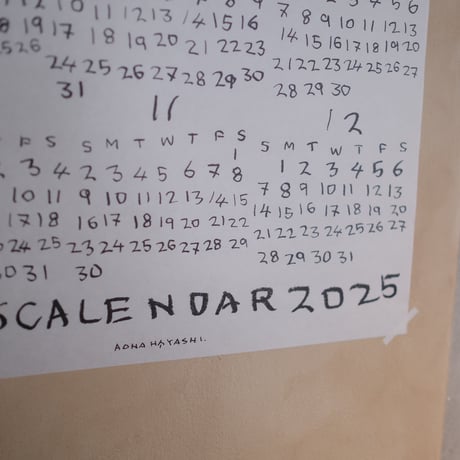 12
8 19
25 26
10 11 12 13 14 15 16
17 18 19 20 21 22 23
24 25 26 27 28 29 30
31
3 4 5 6
7 8 9 10 11 12 13
14 15 16 17 18 19 20
21 22 23 24 25 26 27
28 29 30
F S
3 4
10 11
17 18
24 25
31
11
S M T W T F S
1
2 3 4 5 6 7 8
9 10 11 12 13 14 15
16 17 18 19 20 21 22
23 24 25 26 27 28 29
30
12
S M T W T F S
1 2 3 4 5 6
7 8 9 10 11 12 13
14 15 16 17 18 19 20
21 22 23 24 25 26 27
28 29 30 31
SCALENDAR 2025
AOHA HAYASHI.